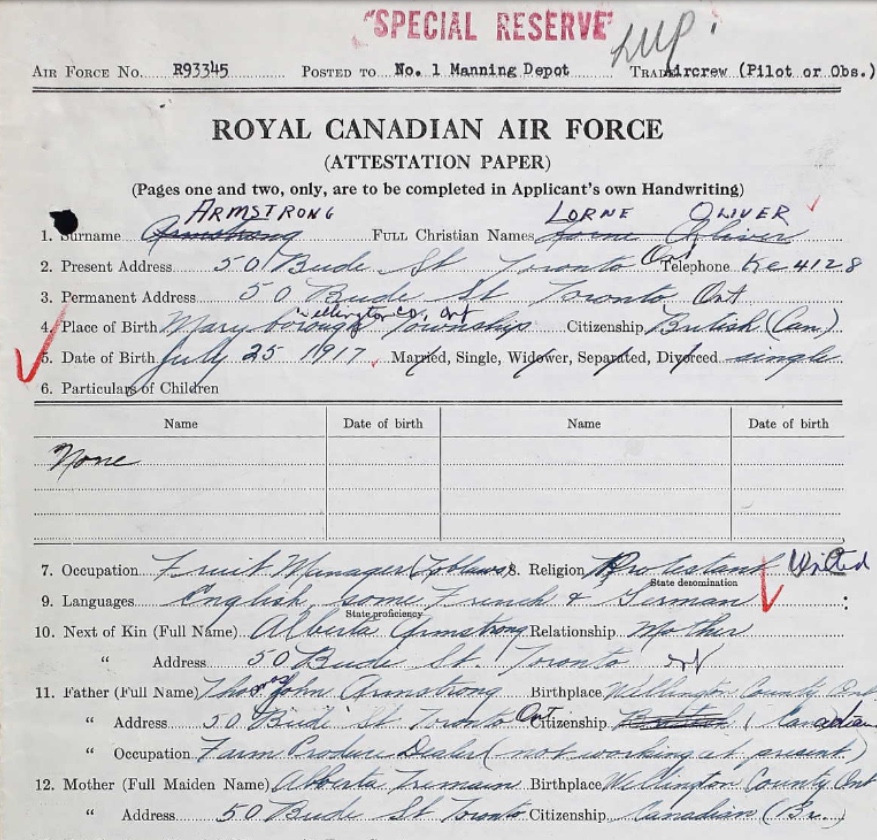 "SPECIAL RESERVE"
AIR FORCE NO. R93345 POSTED TO No. 1 Manning Depot TRADE Aircrew (Pilot or Obs.)
ROYAL CANADIAN AIR FORCE
(ATTESTATION PAPER)
(Pages one and two, only, are to be completed in Applicant's own Handwriting)
ARMSTRONG LORNE OLIVER
1. Surname Armstrong FULL Christian Names Lorne Oliver
2. Present Address 50 Bude St Toronto Ont Telephone Ke 4128
3. Permanent Address 50 Bude St Toronto Ont
Wellington Co, Ont
4. Place of Birth Maryborough Township Citizenship British (Can.)
5. Date of Birth July 25 1917 Married, Single, Widower, Separated, Divorced single
6. Particulars of Children
Name Date of birth Name Date of birth
None
7. Occupation Fruit Manager (Loblaws) 8. Religion Protestant United
State denomination
9. Languages English some French & German
State proficiency
10. Next of Kin (Full Name) Alberta Armstrong Relationship Mother
" Address 50 Bude St. Toronto Ont
11. Father (Full Name) Thomas John Armstrong Birthplace Wellington County Ont
" Address 50 Bude St Toronto Ont Citizenship British (Canadian
" Occupation Farm Produce Dealer (not working at present)
12. Mother (Full Maiden Name) Alberta Tremain Birthplace Wellington County Ont
" Address 50 Bude St Toronto Citizenship Canadian (Br.)